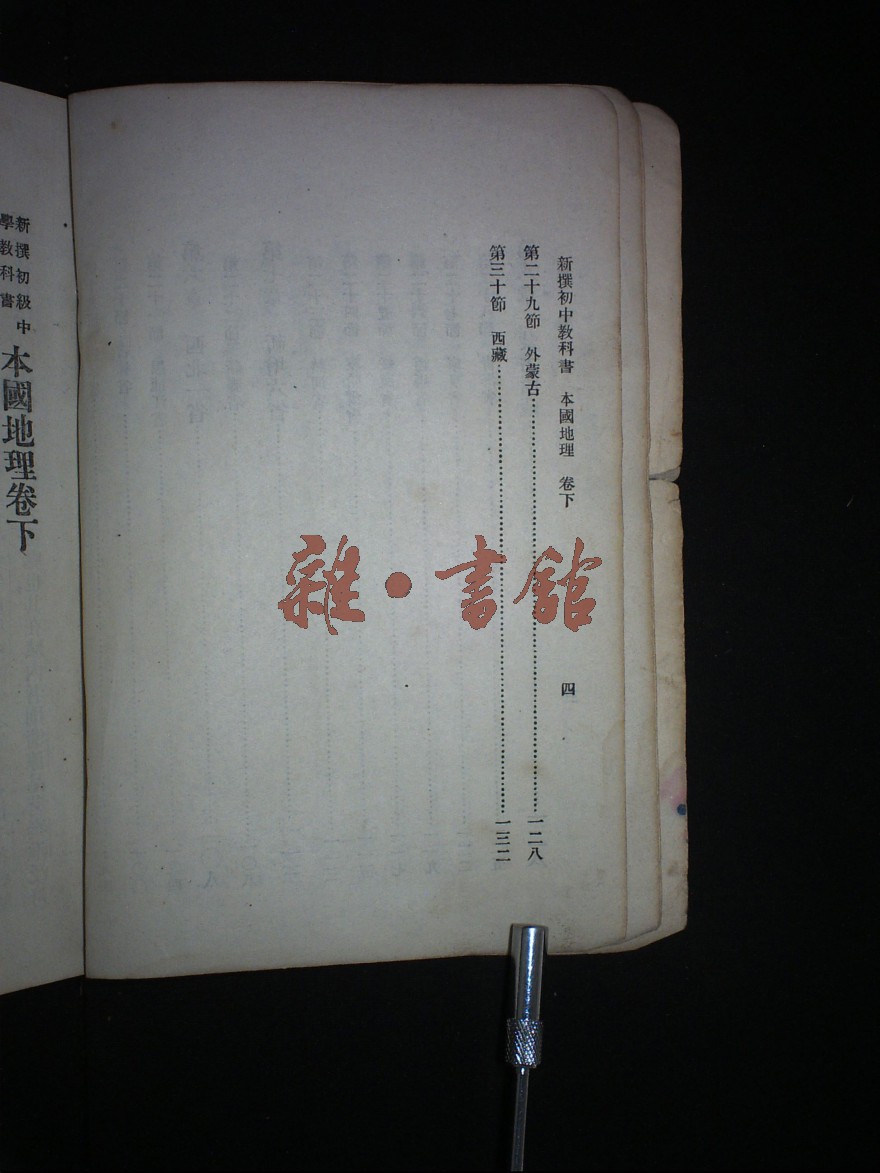 新撰初中教科書 本國地理 卷下 四
第二十九節 外蒙古……一二八
第三十節 西藏……一三二
新撰初級中
學教科書
本國地理卷下
雜·書館